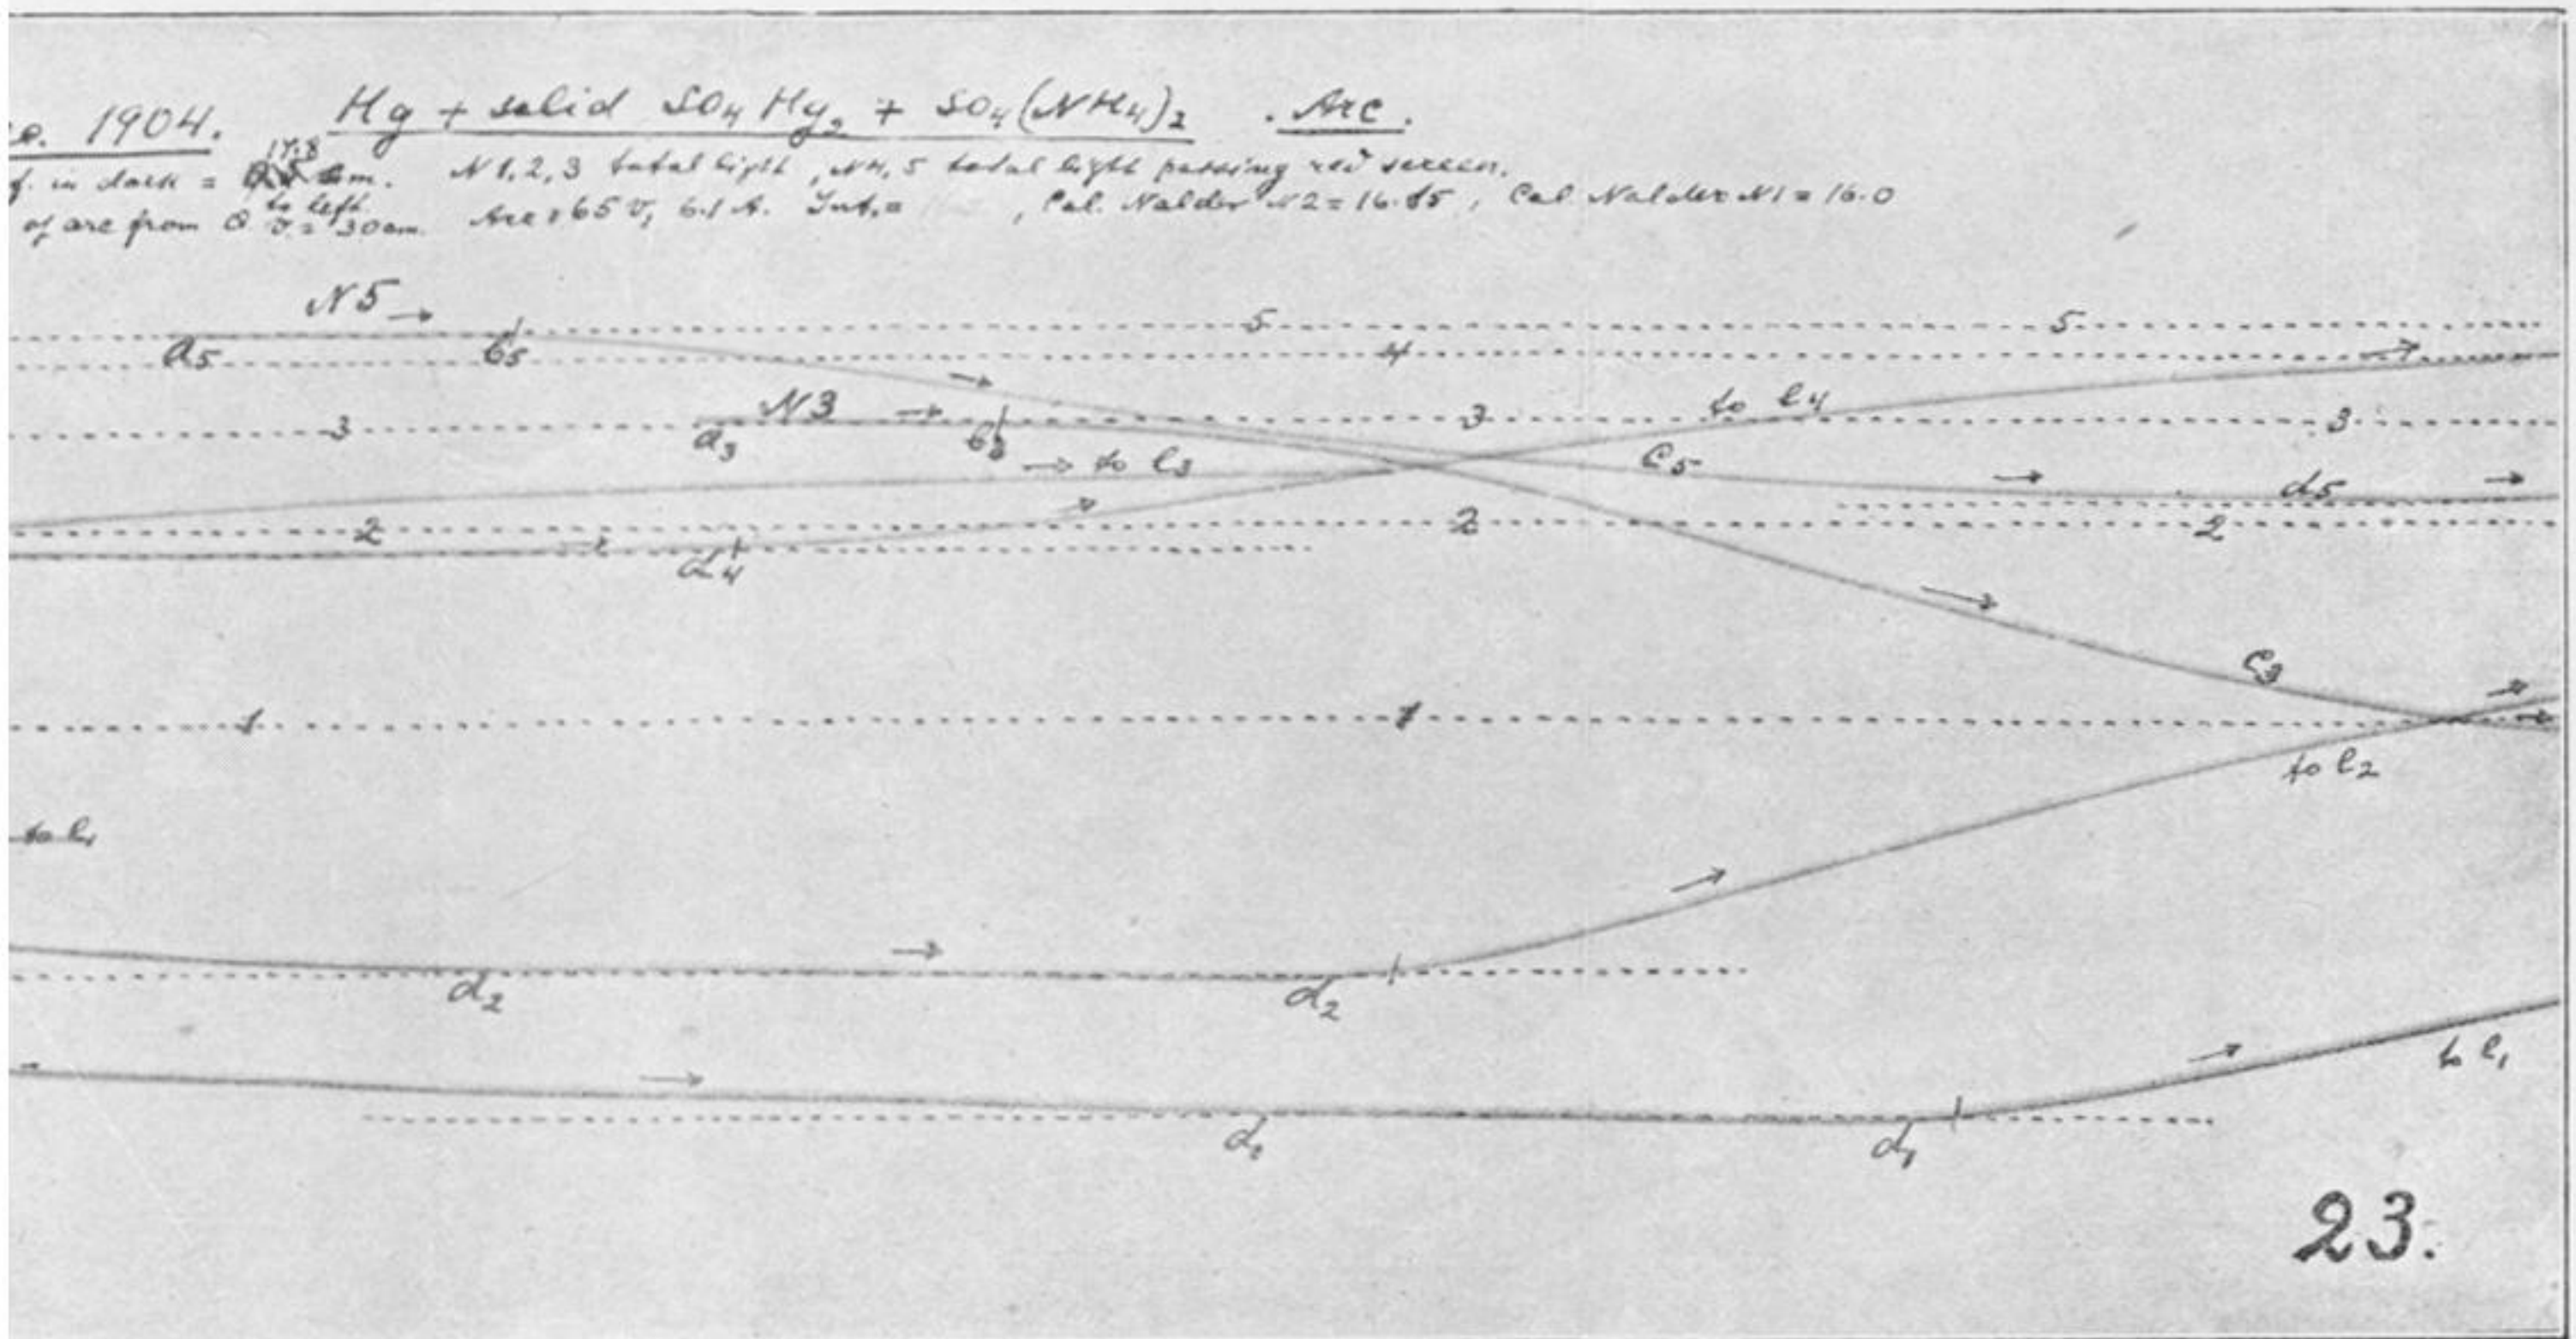 1904. Hg + solid SO4 Hg2 + SO4(NH4)2 . Arc.
17.8
in dark = cm. N 1, 2, 3 total light, N4, 5 total light passing red screen.
to left
of arc from Q = 30 cm. Arc: 65 V, 6.1 A. Int. = , Cal. Nalder N2 = 16.85, Cal Nalder N1 = 16.0
N5 →
5 5
a5 b5 4
N3 → 3 to e4 3
3 a3 b3
→ to e3 c5 d5
2 2 2
d4
c3
1 1
to e2
to e1
d2 d2
to e1
d1 d1
23.